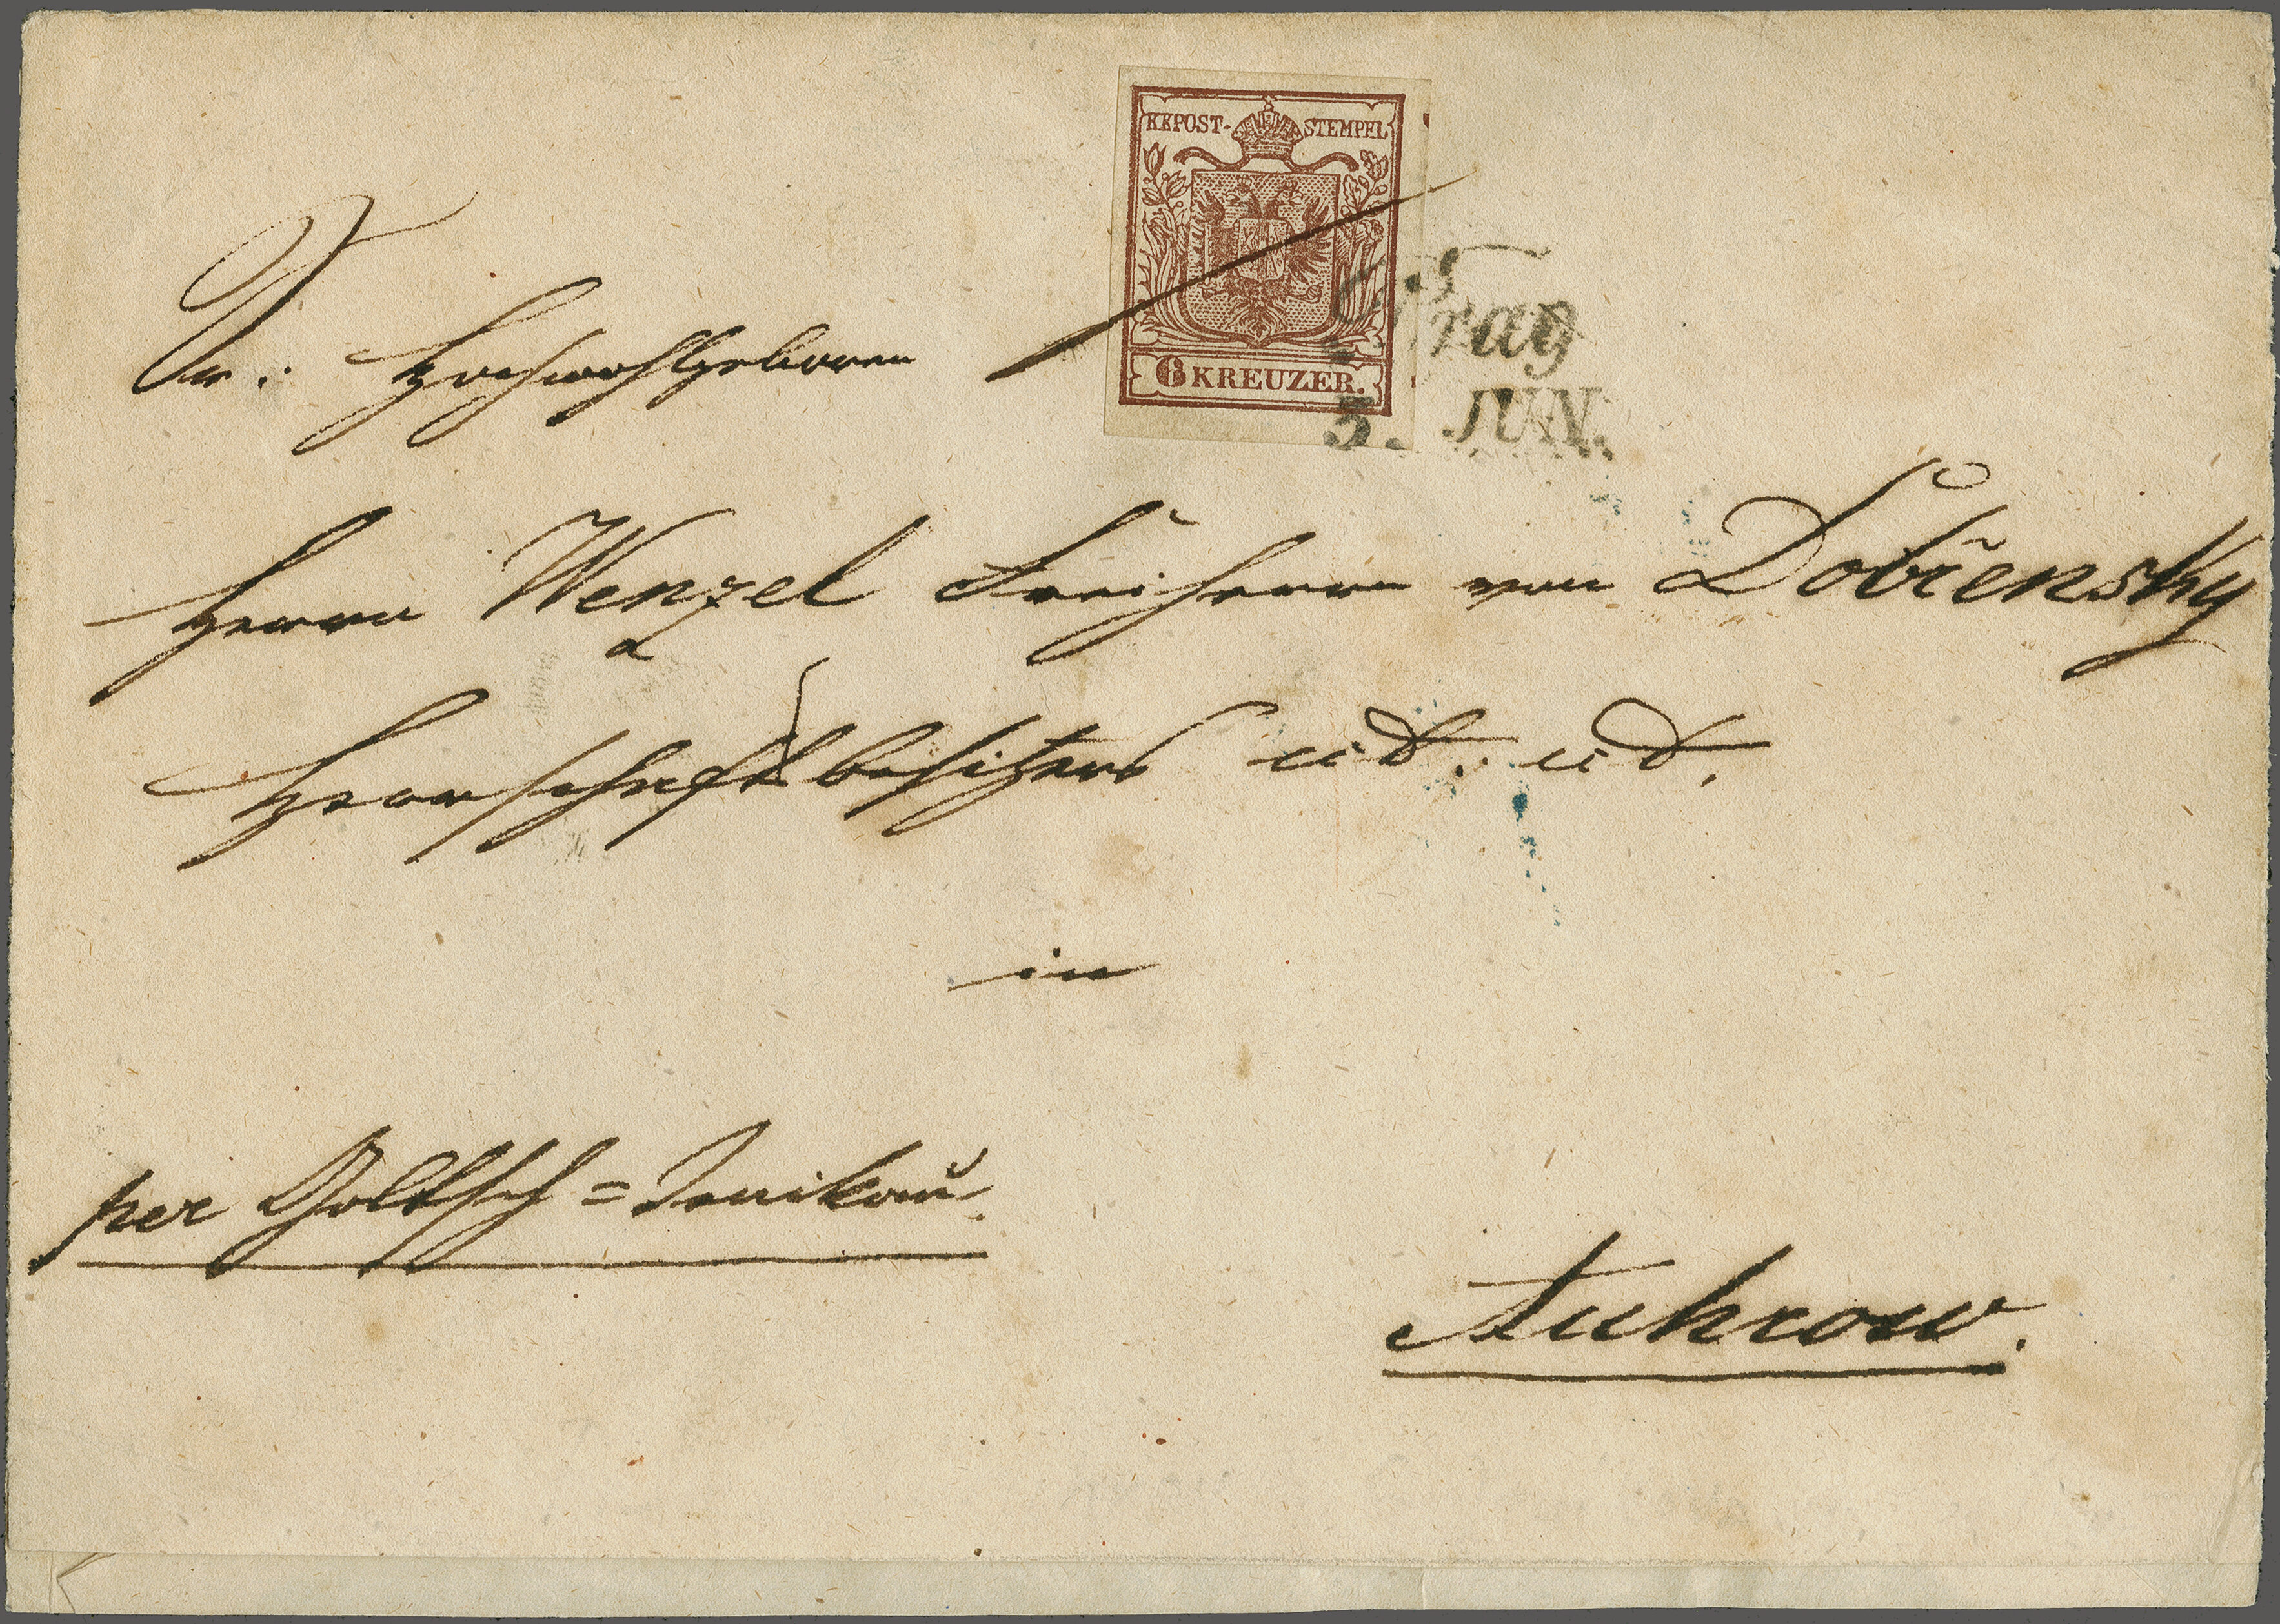 KKPOST-STEMPEL
6 KREUZER.
Prag
3. JUN.
Sr. Hochwohlgeboren
Herrn Wenzel Freiherrn von Dobřensky
Herrschaftsbesitzers
in
per Goltsch=Jenikau.